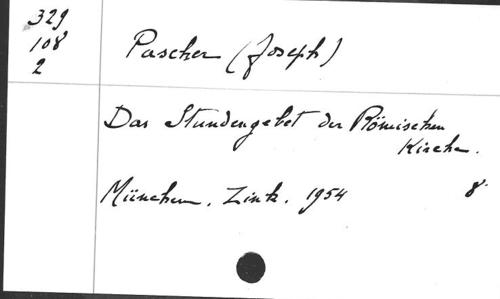 329
108
2
Pascher (Joseph)
Das Stundengebet der Römischen
Kirche.
München. Zink. 1954 8°